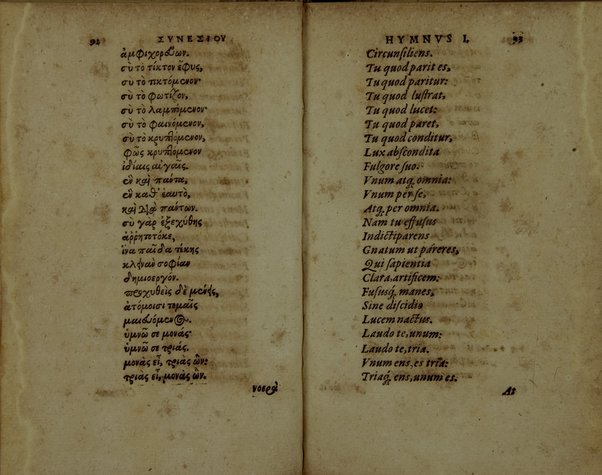 92 ΣΥΝΕΣΙΟΥ
ἀμφιχορεύων.
σὺ τὸ τίκτον ἔφυς,
σὺ τὸ τικτόμενον·
σὺ τὸ φωτίζον,
σὺ τὸ λαμπόμενον·
σὺ τὸ φαινόμενον,
σὺ τὸ κρυπτόμενον,
φῶς κρυπτόμενον
ἰδίαις αὐγαῖς.
ἓν καὶ πάντα,
ἓν καθ' ἑαυτὸ,
καὶ διὰ πάντων.
σὺ γὰρ ἐξεχύθης
ἀῤῥητοτόκε,
ἵνα παῖδα τέκης
κλεινὰν σοφίαν
δημιοεργόν.
προχυθεὶς δὲ μένεις,
ἀτόμοισι τομαῖς
μαιευόμενος.
ὑμνῶ σε μονάς·
ὑμνῶ σε τριάς.
μονὰς εἶ, τριὰς ὤν·
τριὰς εἶ, μονὰς ὤν.
νοερὰ
HYMNVS I. 93
Circunsiliens.
Tu quod parit es,
Tu quod paritur:
Tu quod lustrat,
Tu quod lucet:
Tu quod paret,
Tu quod conditur,
Lux abscondita
Fulgore suo.
Vnum atq; omnia:
Vnum per se,
Atq; per omnia.
Nam tu effusus
Indictiparens
Gnatum ut pareres,
Qui sapientia
Clara, artificem:
Fususq; manes,
Sine discidio
Lucem nactus.
Laudo te, unum:
Laudo te, tria.
Vnum ens, es tria:
Triaq; ens, unum es.
At